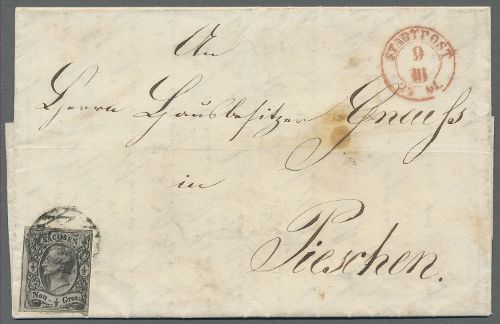 An
STADTPOST
9
III
Herrn Hausbesitzer Gnauss
in
Pieschen.
SACHSEN
Neu- ½ Grosch.